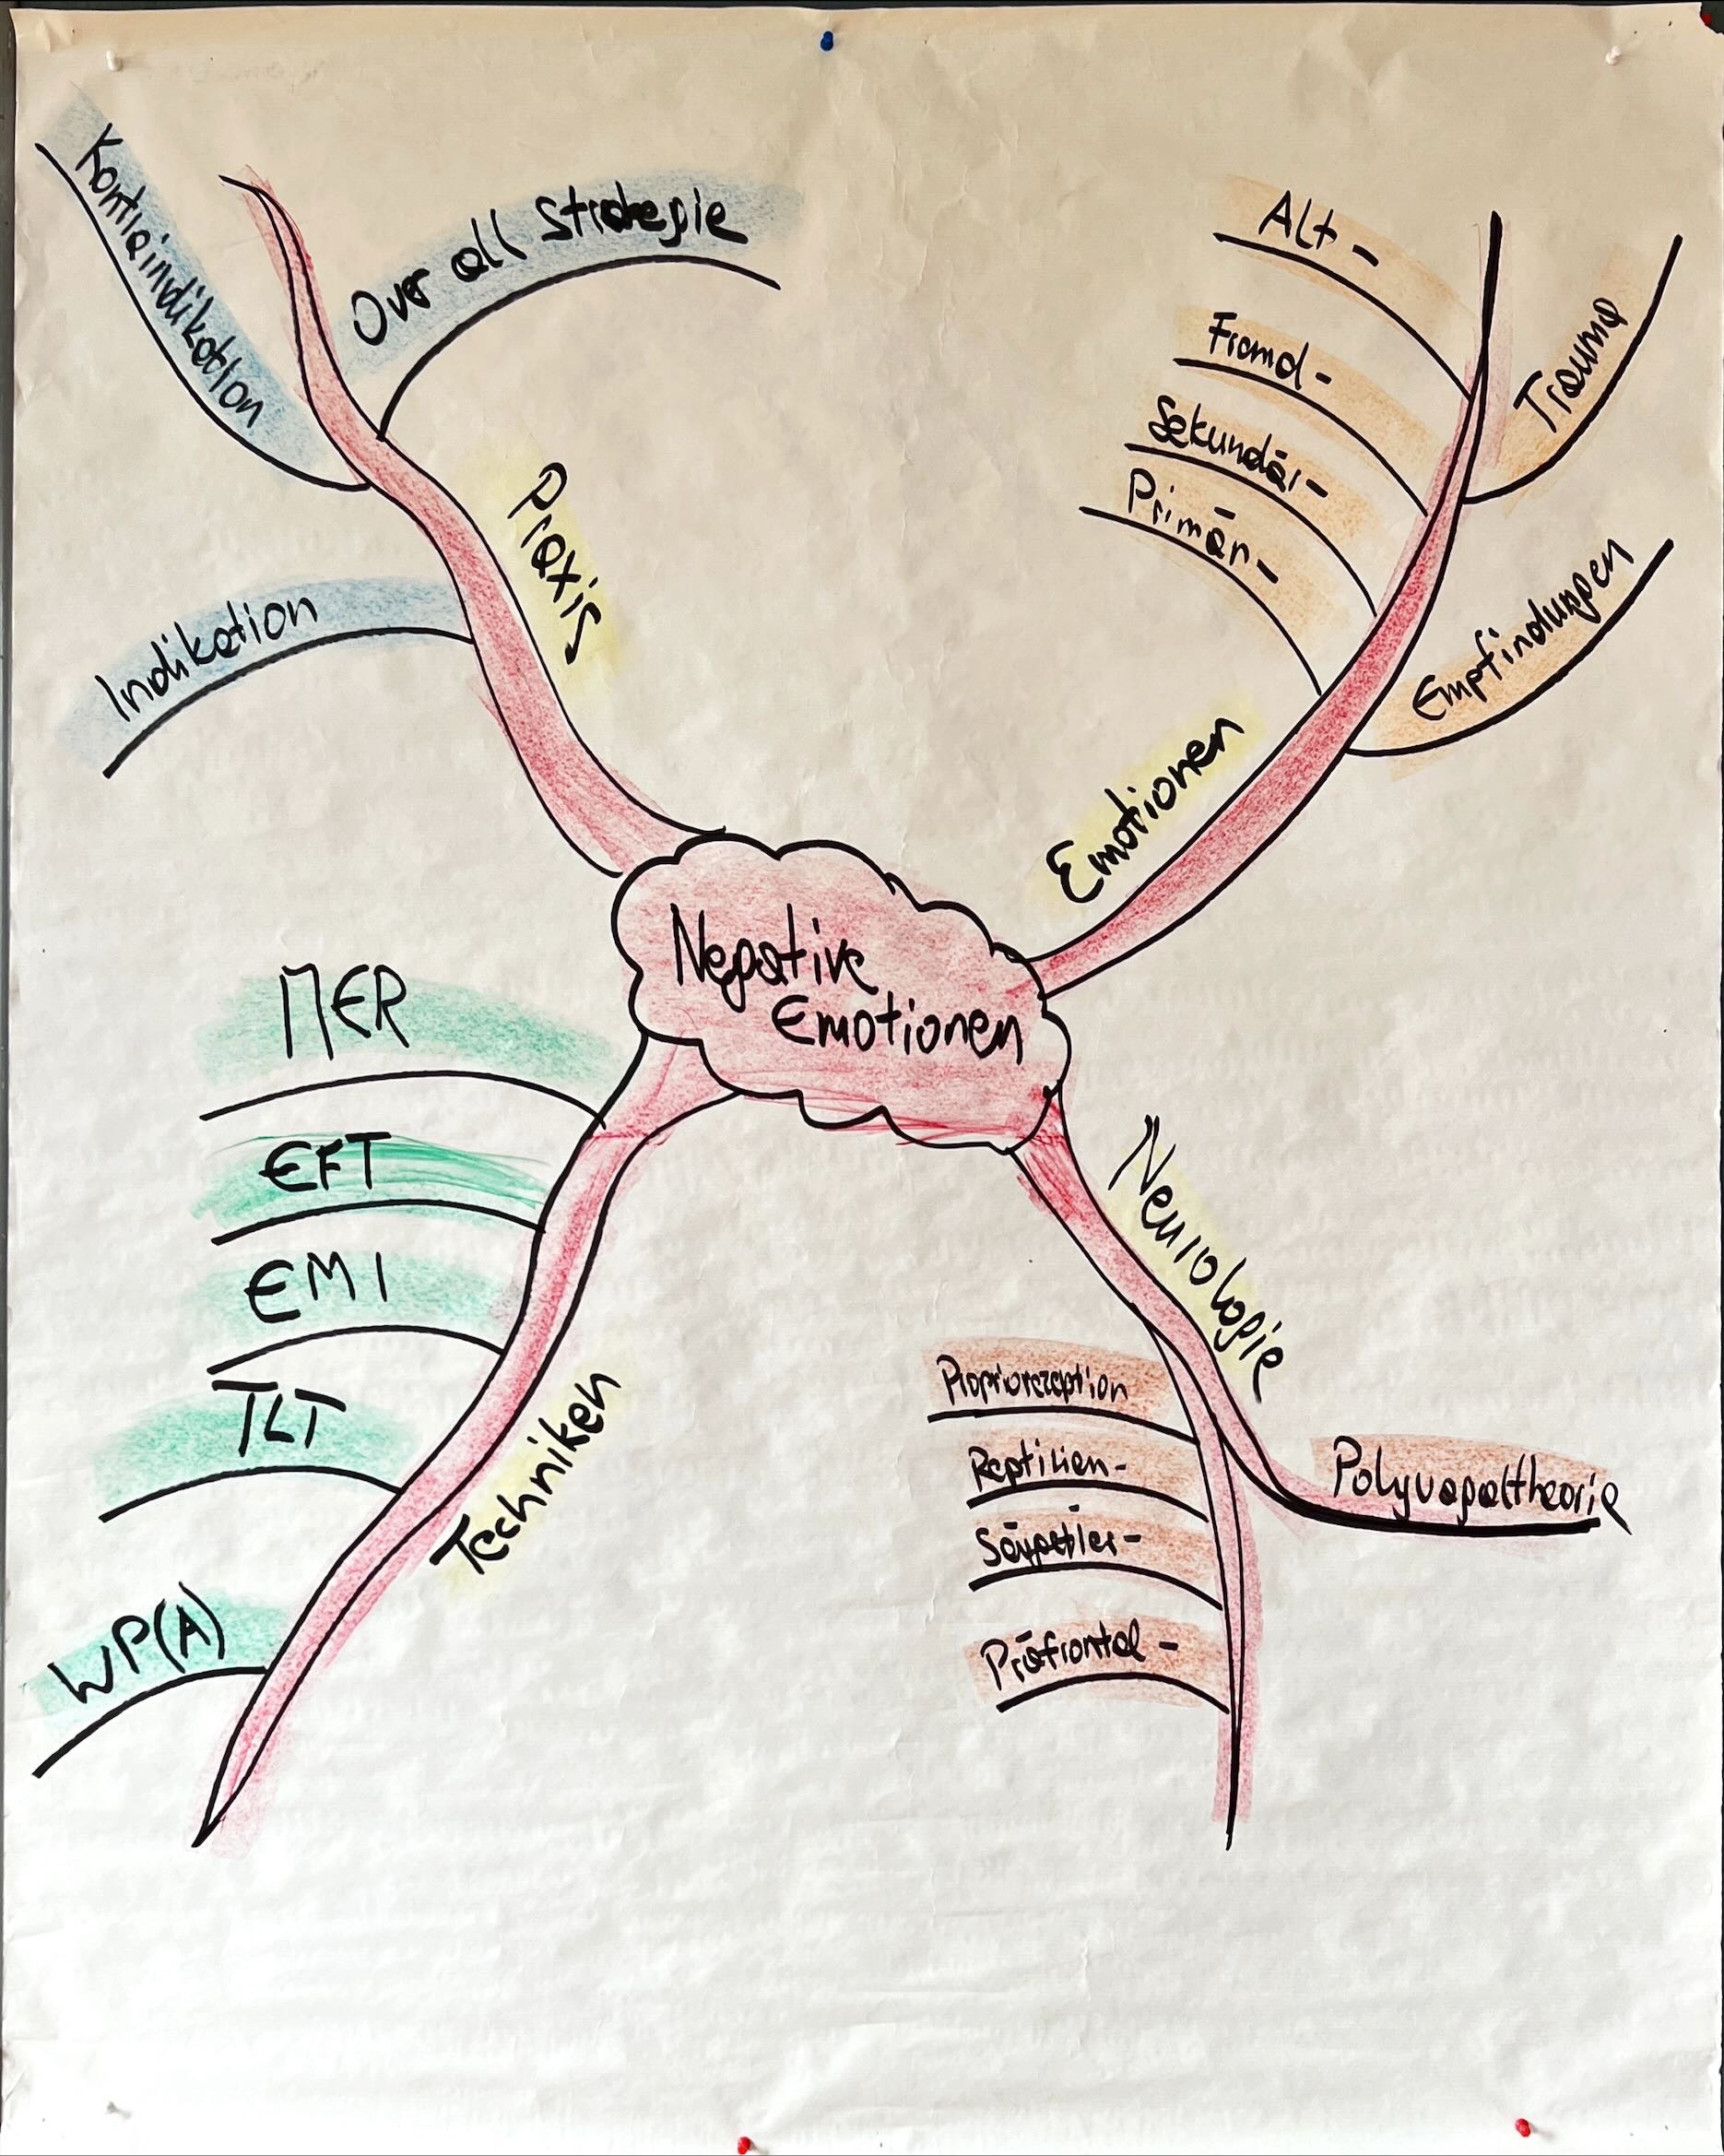 Negative
Emotionen
Praxis
Kontraindikation
Over all Strategie
Indikation
Emotionen
Alt -
Fremd -
Sekundär -
Primär -
Trauma
Empfindungen
Techniken
MER
EFT
EMI
TLT
WP(A)
Neurologie
Propriorezeption
Reptilien -
Säugetier -
Präfrontal -
Polyvagaltheorie